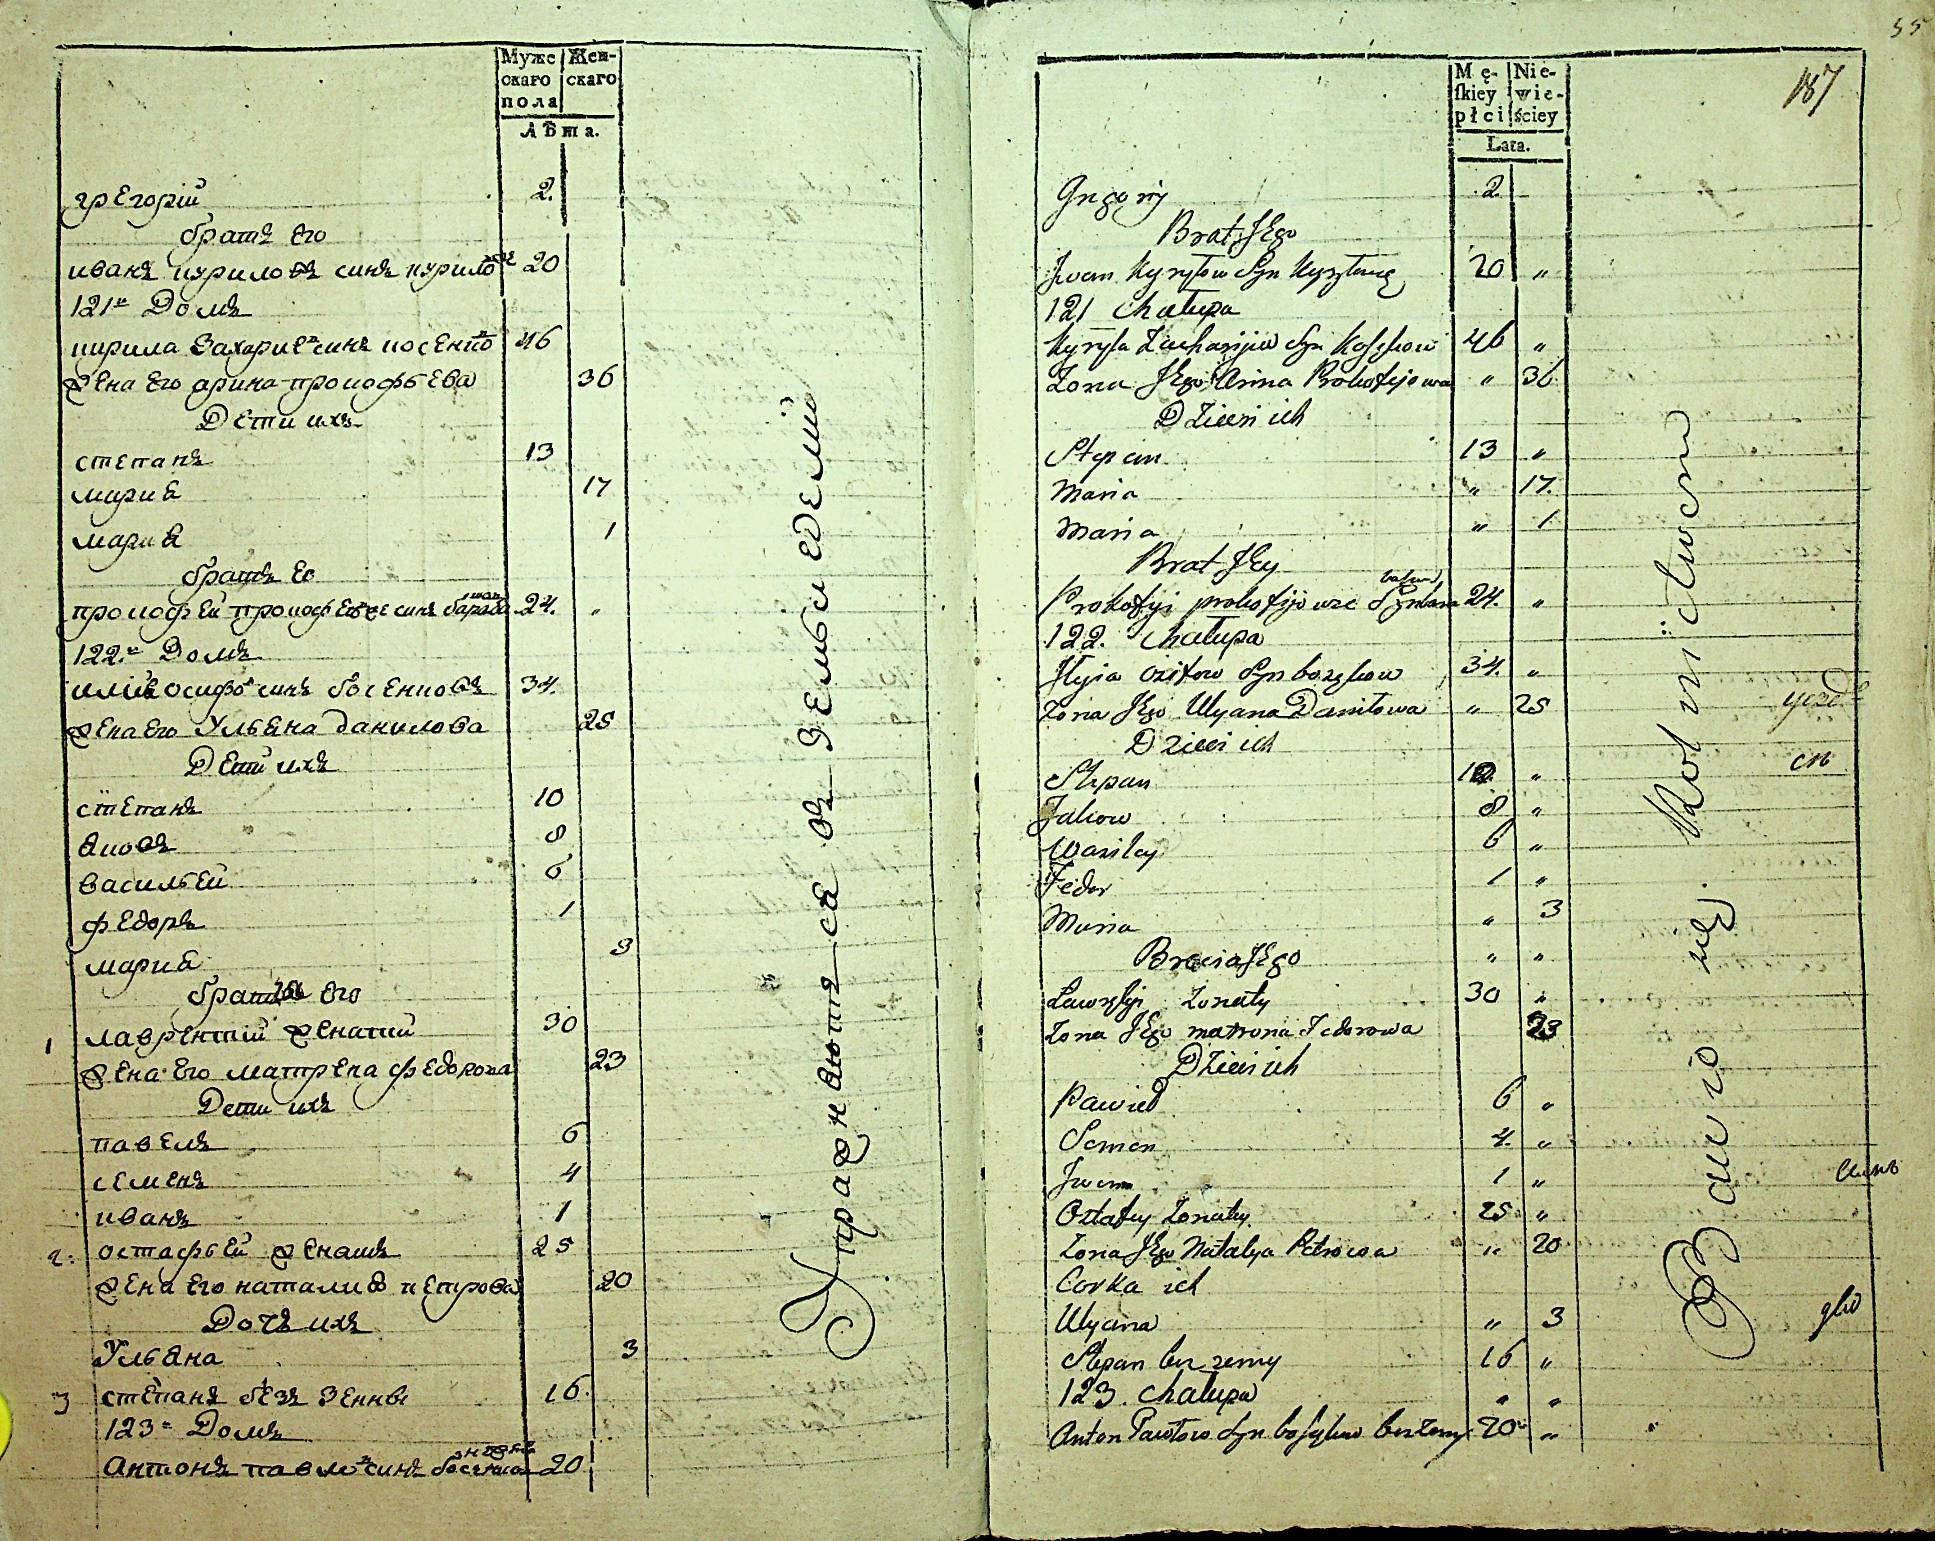 Муже
скаго
пола
Жен-
скаго
Лѣта.
григорій 2.
братъ его
иванъ курило синъ 20
121й Домъ
кирила Захарие синъ 46
жена его арина прокофьева 36
Дети ихъ
степанъ 13
мария 17
мария 1
братъ ее
прокофей синъ 24.
122.й Домъ
илія осифо синъ босенковъ 34.
жена его Ульяна данилова 25
Дети ихъ
степанъ 10
яковъ 8
василей 6
федоръ 1
мария 3
братья его
1 лаврентій женатий 30
жена его матрена федорова 23
Дети ихъ
павелъ 6
семенъ 4
иванъ 1
2. остафей женатъ 25
жена его наталия петрова 20
Дочь ихъ
Ульяна 3
3 степанъ безъ женны 16
123й Домъ
Антонъ павло синъ 20
Упражняются въ земледелии
55
187
Mę-
skiey
płci
Nie-
wie-
ściey
Lata.
Grigoriy 2
Brat Jego
Jwan Kyryłow Syn 20 „
121 Chałupa
Kyryła Zacharyiw Syn 46 „
Żona Jego Arina Prokofijowa „ 36
Dzieci ich
Stepan 13 „
Maria „ 17.
Maria „ 1
Brat Jey
Prokofyi 24. „
122. Chałupa
Jlyia Syn 34. „
Żona Jego Ulyana Daniłowa „ 25
Dzieci ich
Stepan 10 „
Jakow 8 „
Wasiley 6 „
Fedor 1 „
Maria „ 3
Bracia Jego „ „
Ławryn Żonaty 30 „
Żona Jego matrona Fedorowa 23
Dzieci ich
Paweł 6 „
Semen 4. „
Jwan 1 „
Ostafiy Żonaty 25 „
Żona Jego Natalya Petrowa „ 20
Corka ich
Ulyana „ 3
Stepan bez żeny 16 „
123. Chałupa „ „
Anton Pawłow Syn bez żeny 20 „
Bawio się Rolnictwem